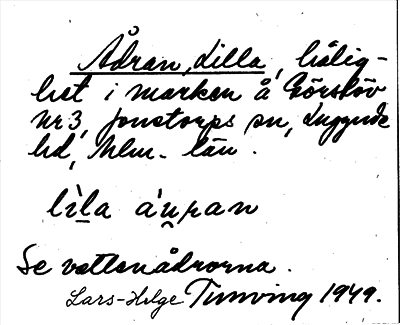 Ådran, Lilla, hålig-
het i marken å Görslöv
Nr 3, Jonstorps sn, Luggude
hd, Mlm. län.
lìla áuran
Se vattenådrorna.
Lars-Helge Tunving 1949.